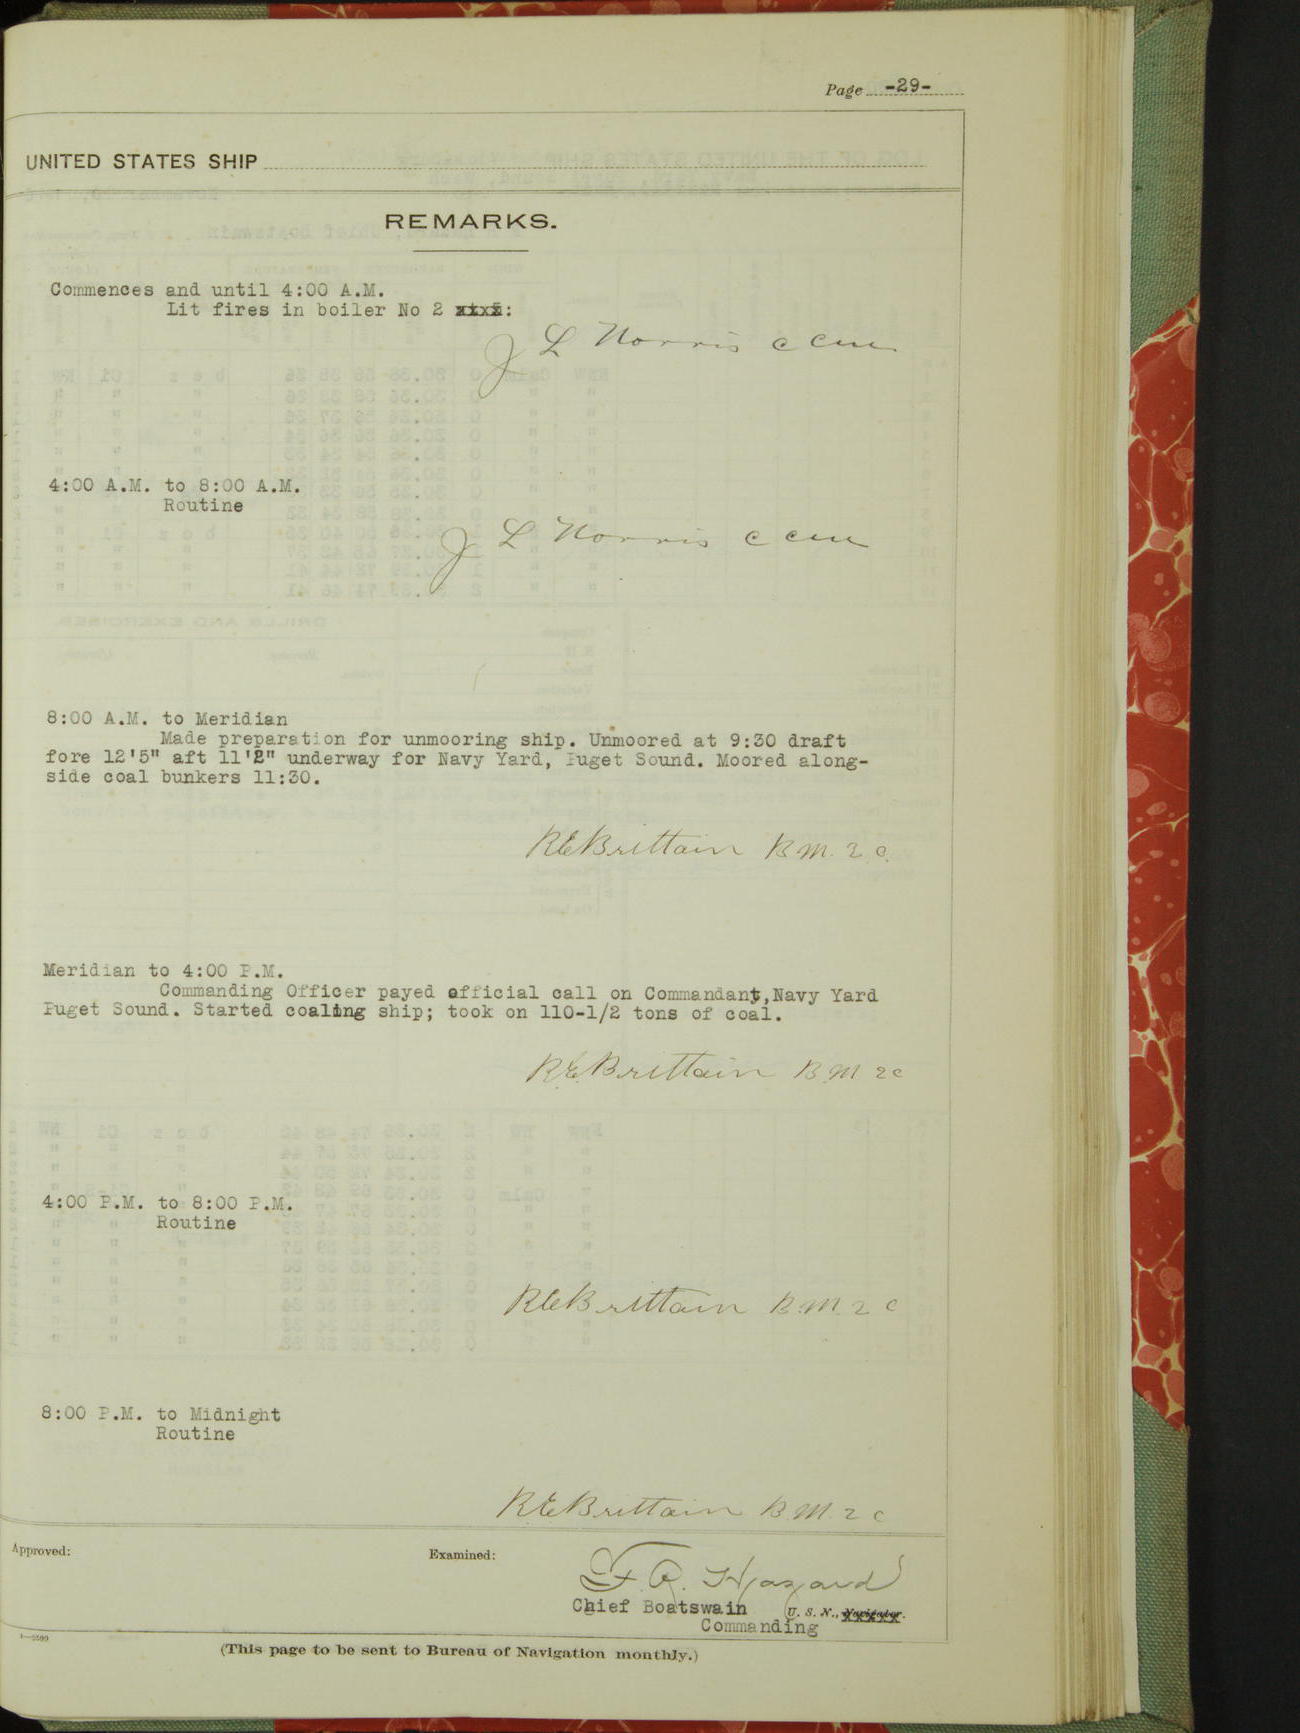 Page -29-
UNITED STATES SHIP
REMARKS.
Commences and until 4:00 A.M.
Lit fires in boiler No 2 xxxx:
J L Norris CCM
4:00 A.M. to 8:00 A.M.
Routine
J L Norris CCM
8:00 A.M. to Meridian
Made preparation for unmooring ship. Unmoored at 9:30 draft
fore 12'5" aft 11'2" underway for Navy Yard, Puget Sound. Moored along-
side coal bunkers 11:30.
R E Brittain B.M. 2 c.
Meridian to 4:00 P.M.
Commanding Officer payed official call on Commandant,Navy Yard
Puget Sound. Started coaling ship; took on 110-1/2 tons of coal.
R.E. Brittain B.M 2c
4:00 P.M. to 8:00 P.M.
Routine
R E Brittain B.M. 2 c
8:00 P.M. to Midnight
Routine
R E Brittain B.M. 2 c
Approved:
Examined:
F. R. Hazard
Chief Boatswain U. S. N., Navigator.
Commanding
(This page to be sent to Bureau of Navigation monthly.)